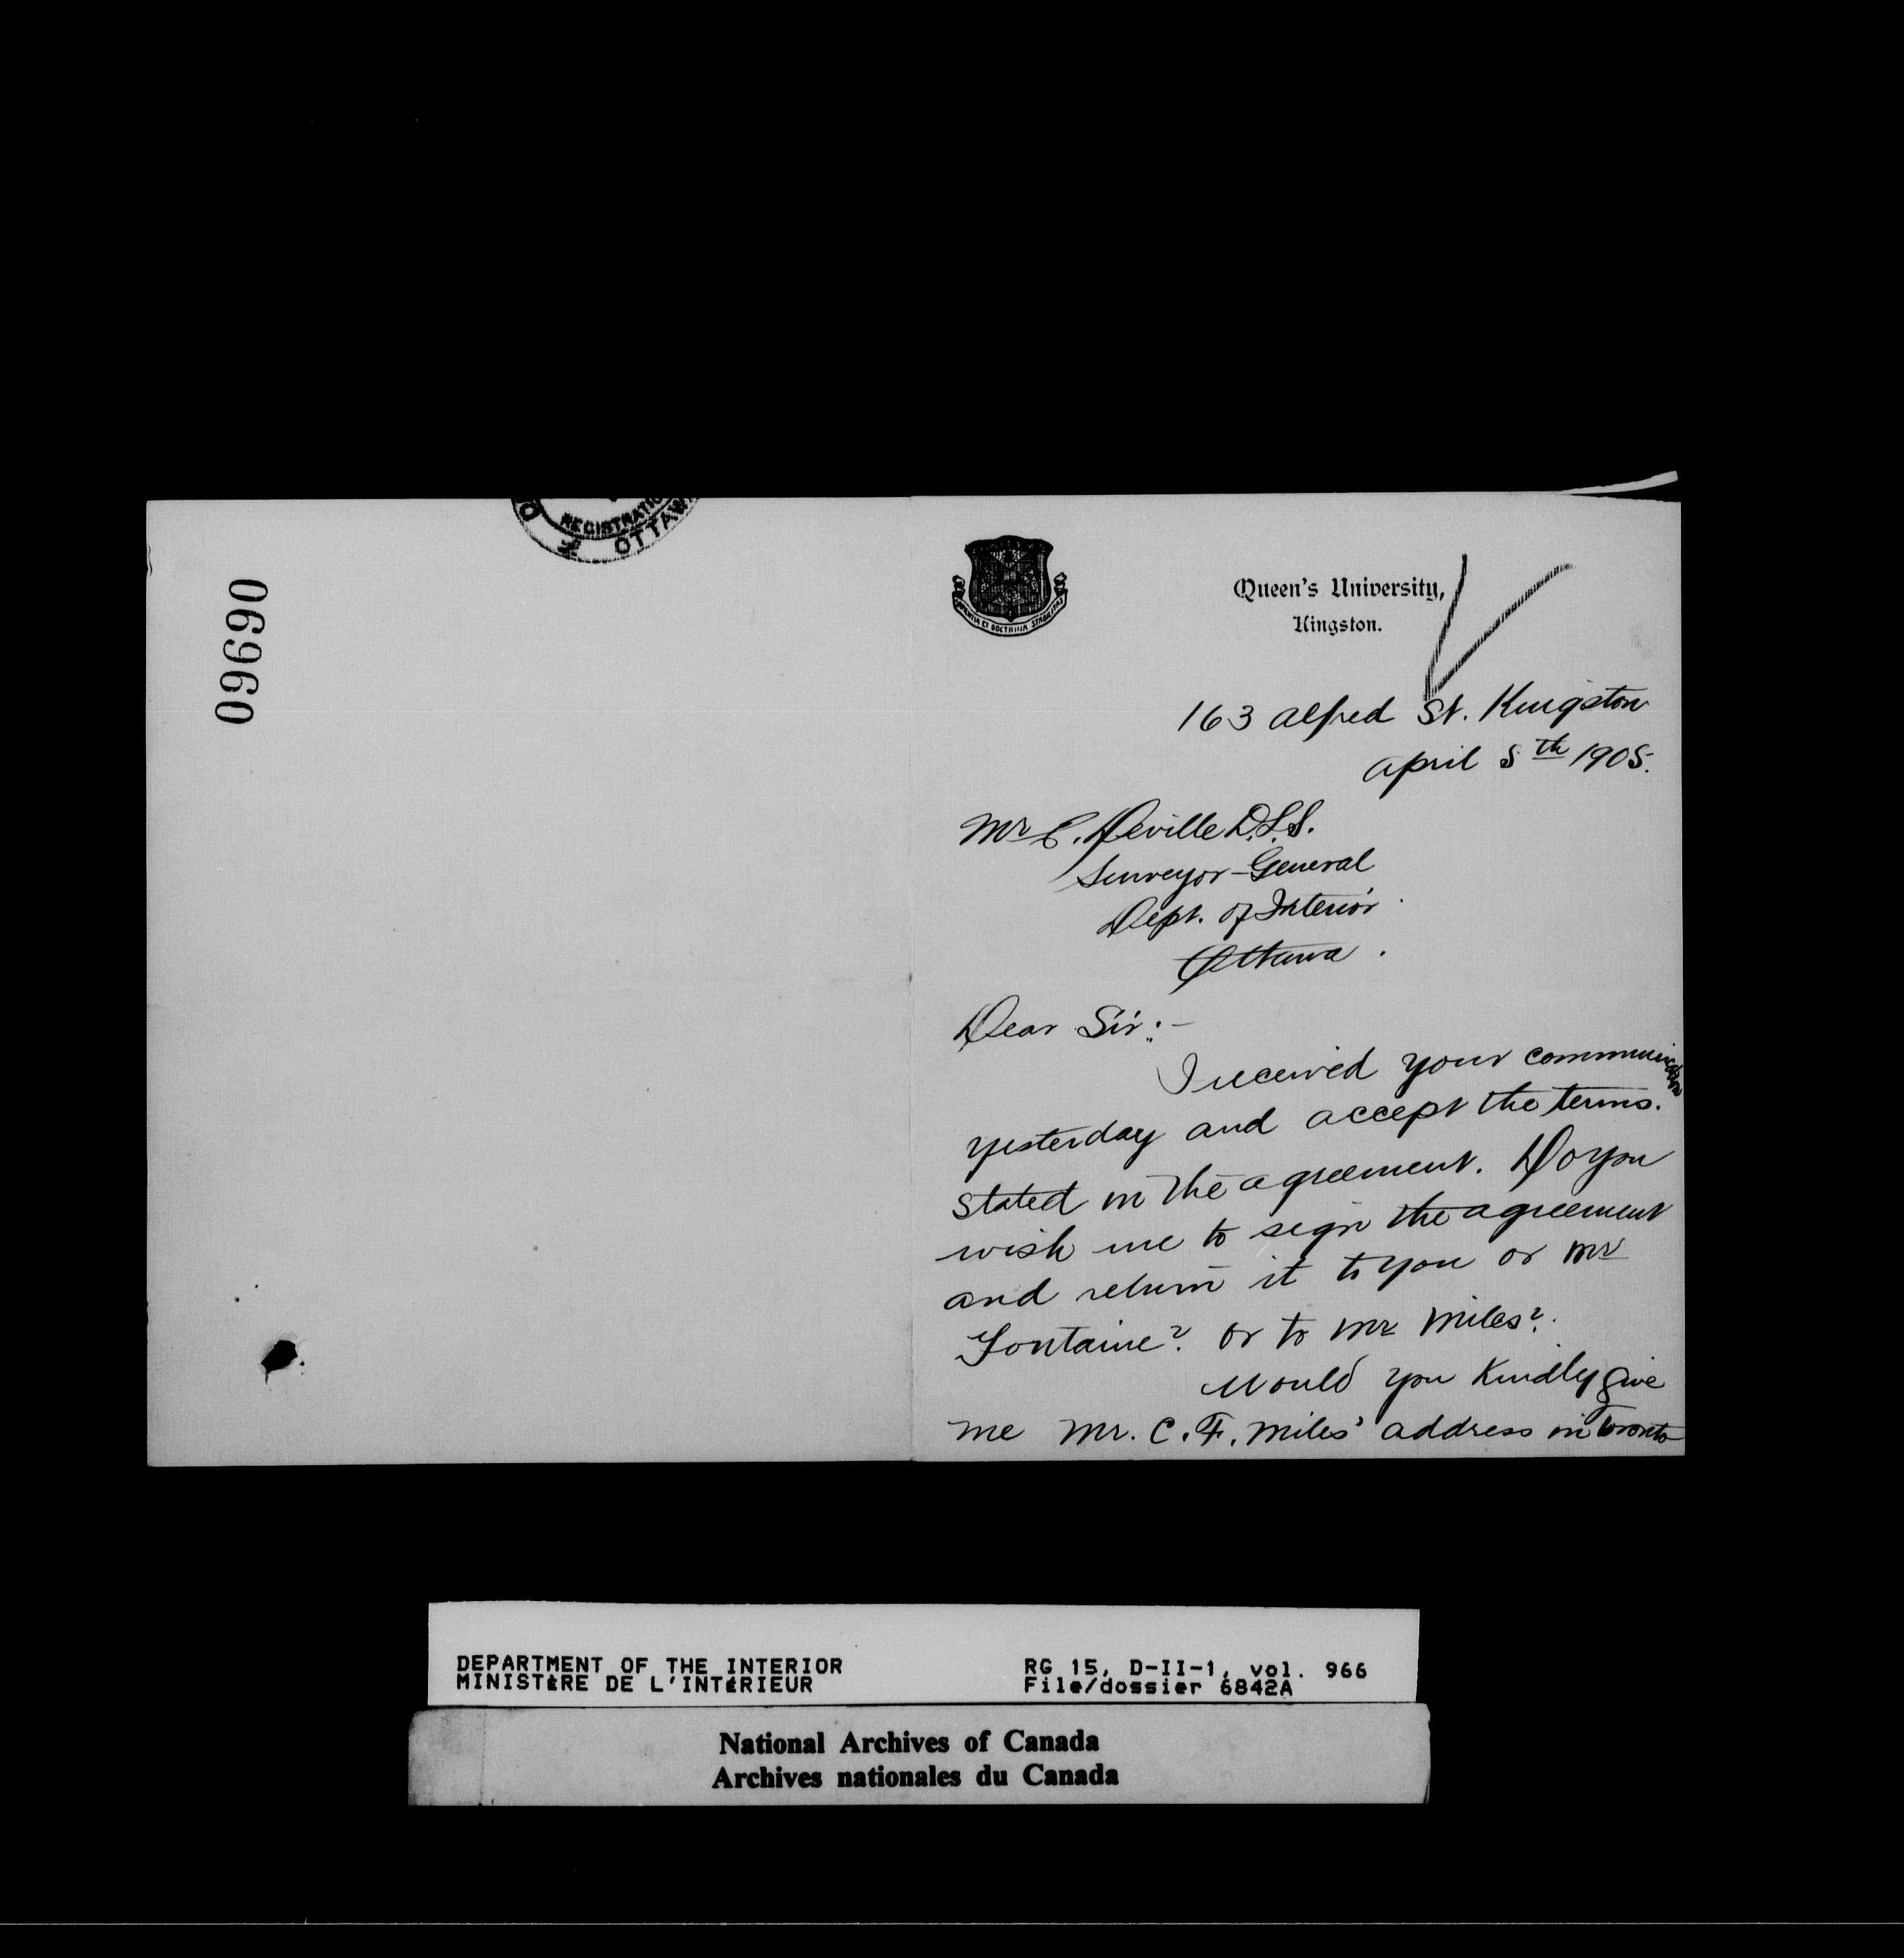 09690
REGISTRATIO
OTTAWA
SAPIENTIA ET DOCTRINA STABILITAS
Queen's University,
Kingston.
163 Alfred St. Kingston
April 5th 1905.
Mr E. Deville D.L.S.
Surveyor-General
Dept. of Interior
Ottawa.
Dear Sir:-
I received your communication
yesterday and accept the terms.
stated in the agreement. Do you
wish me to sign the agreement
and return it to you or Mr
Fontaine? or to Mr Miles?.
Would you kindly give
me Mr. C. F. Miles' address in Toronto
DEPARTMENT OF THE INTERIOR
MINISTÈRE DE L'INTÉRIEUR
RG 15, D-II-1, vol. 966
File/dossier 6842A
National Archives of Canada
Archives nationales du Canada